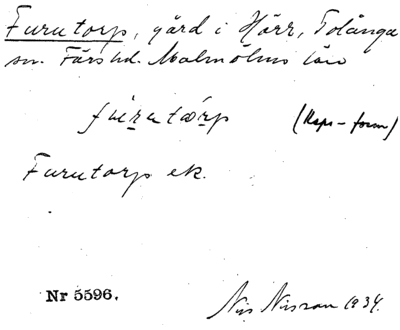 Furutorp, gård i Hörr, Tolånga
sn. Färs hd. Malmöhus län
fúrutǻrp (Rspr-form)
Furutorp ek.
Nr 5596.
Nils Nilsson 1934.